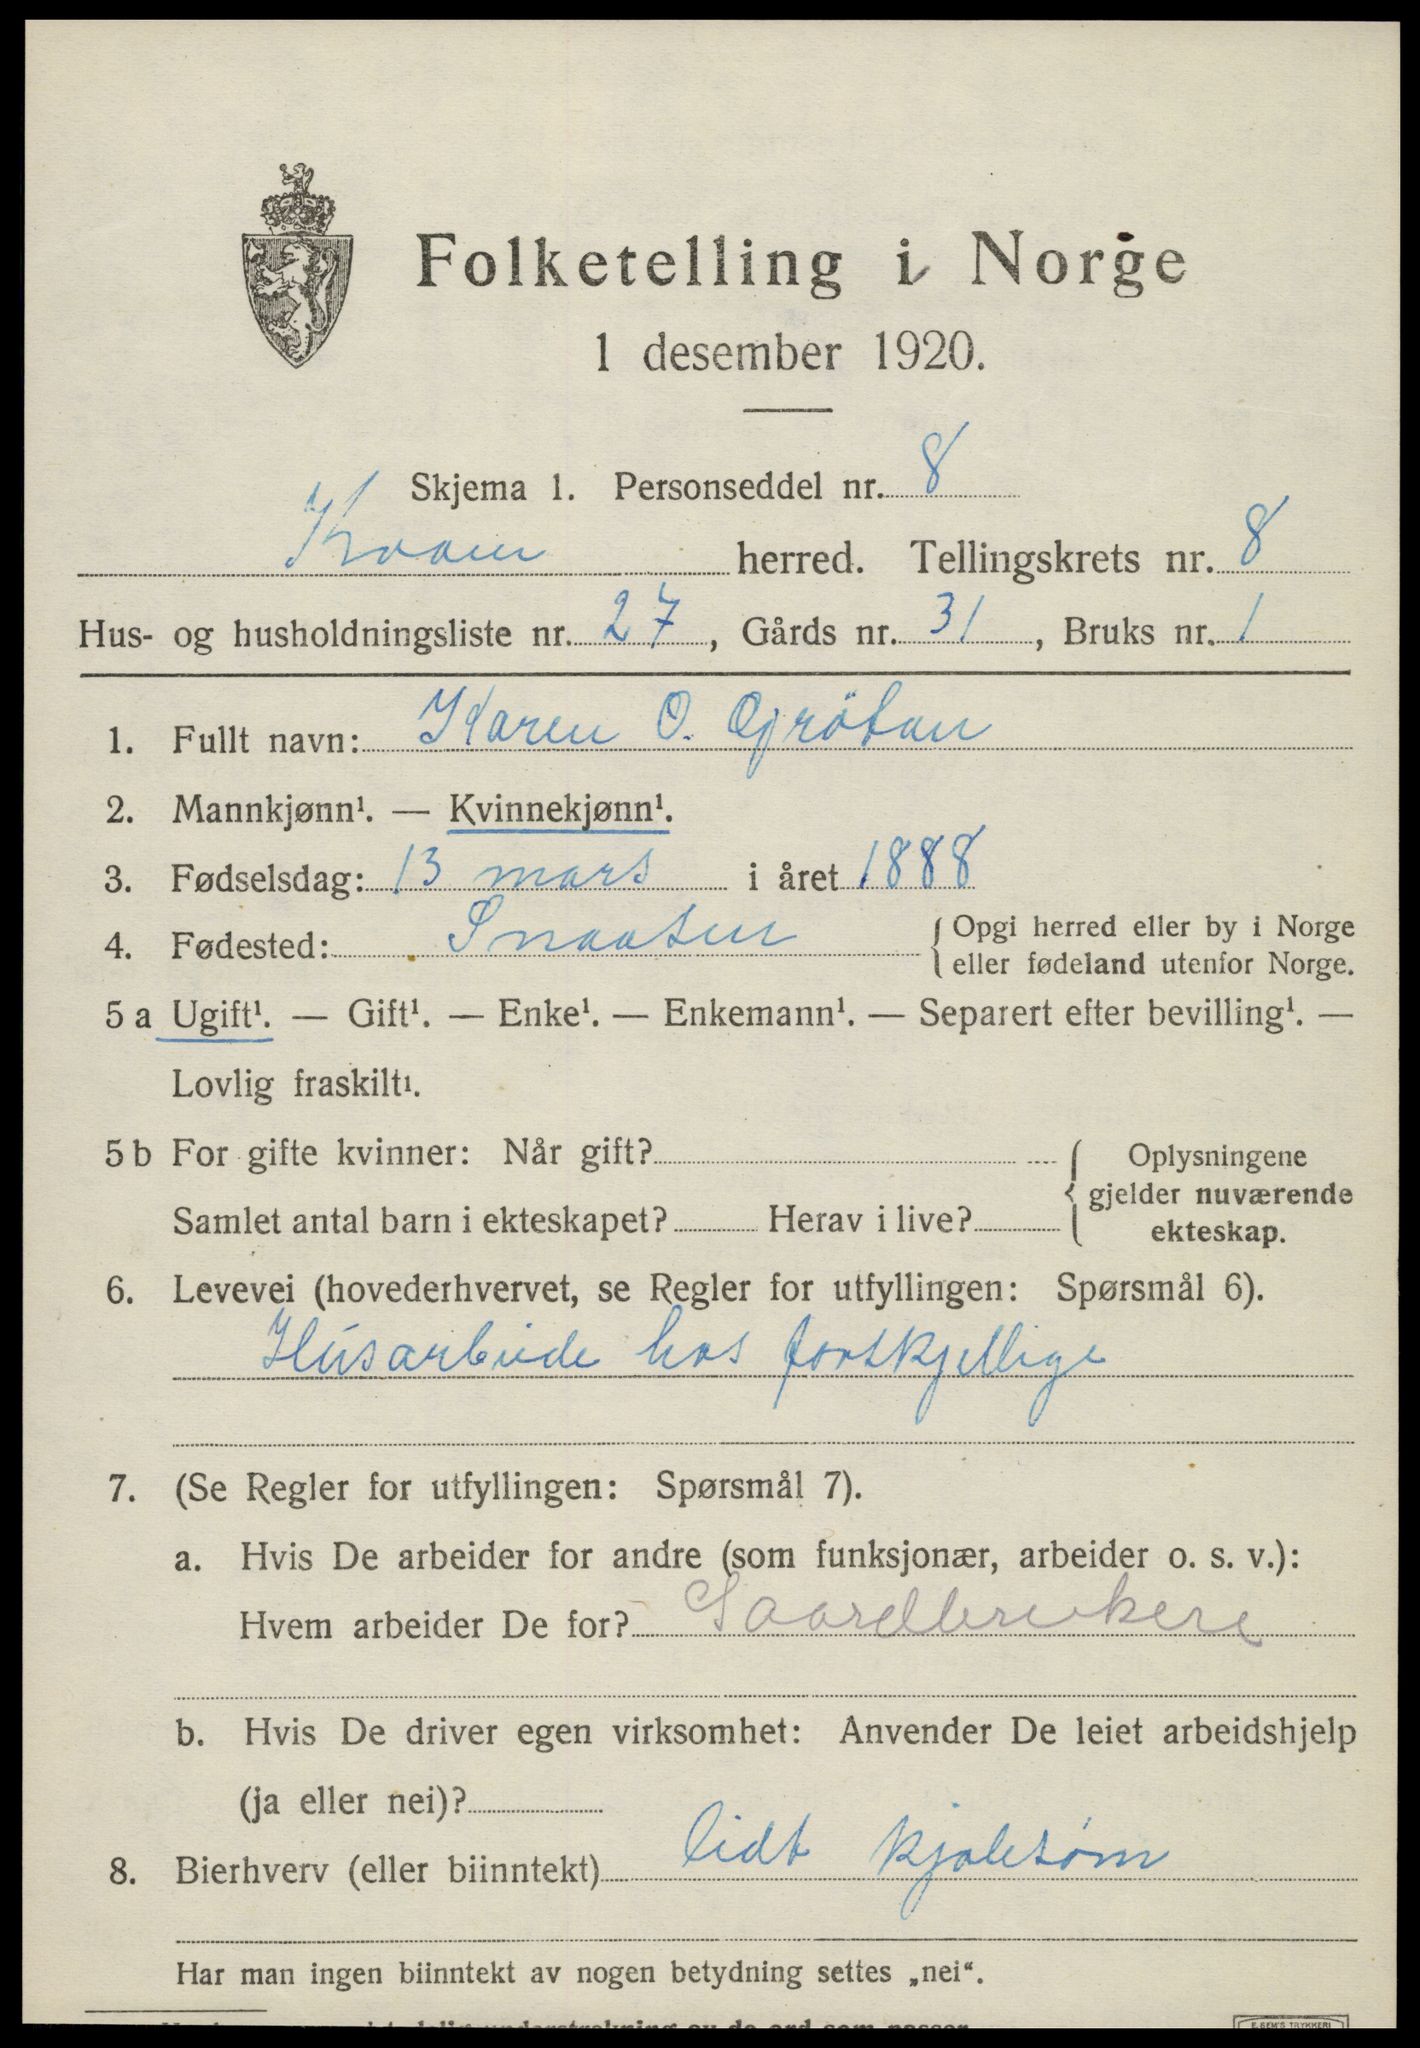 Folketelling i Norge
1 desember 1920.
Skjema 1. Personseddel nr. 8
Kvam herred. Tellingskrets nr. 8
Hus- og husholdningsliste nr. 27, Gårds nr. 31, Bruks nr. 1
1. Fullt navn: Karen O. Grötan
2. Mannkjønn¹. — Kvinnekjønn¹.
3. Fødselsdag: 13 mars i året 1888
4. Fødested: Snaasen { Opgi herred eller by i Norge
eller fødeland utenfor Norge.
5 a Ugift¹. — Gift¹. — Enke¹. — Enkemann¹. — Separert efter bevilling¹. —
Lovlig fraskilt¹.
5 b For gifte kvinner: Når gift? { Oplysningene
gjelder nuværende
Samlet antal barn i ekteskapet? Herav i live? ekteskap.
6. Levevei (hovederhvervet, se Regler for utfyllingen: Spørsmål 6).
Husarbeide hos forskjellige
7. (Se Regler for utfyllingen: Spørsmål 7).
a. Hvis De arbeider for andre (som funksjonær, arbeider o. s. v.):
Hvem arbeider De for? Gaardbrukere
b. Hvis De driver egen virksomhet: Anvender De leiet arbeidshjelp
(ja eller nei)?
8. Bierhverv (eller biinntekt) lidt kjolesøm
Har man ingen biinntekt av nogen betydning settes „nei“.
E. SEM'S TRYKKERI